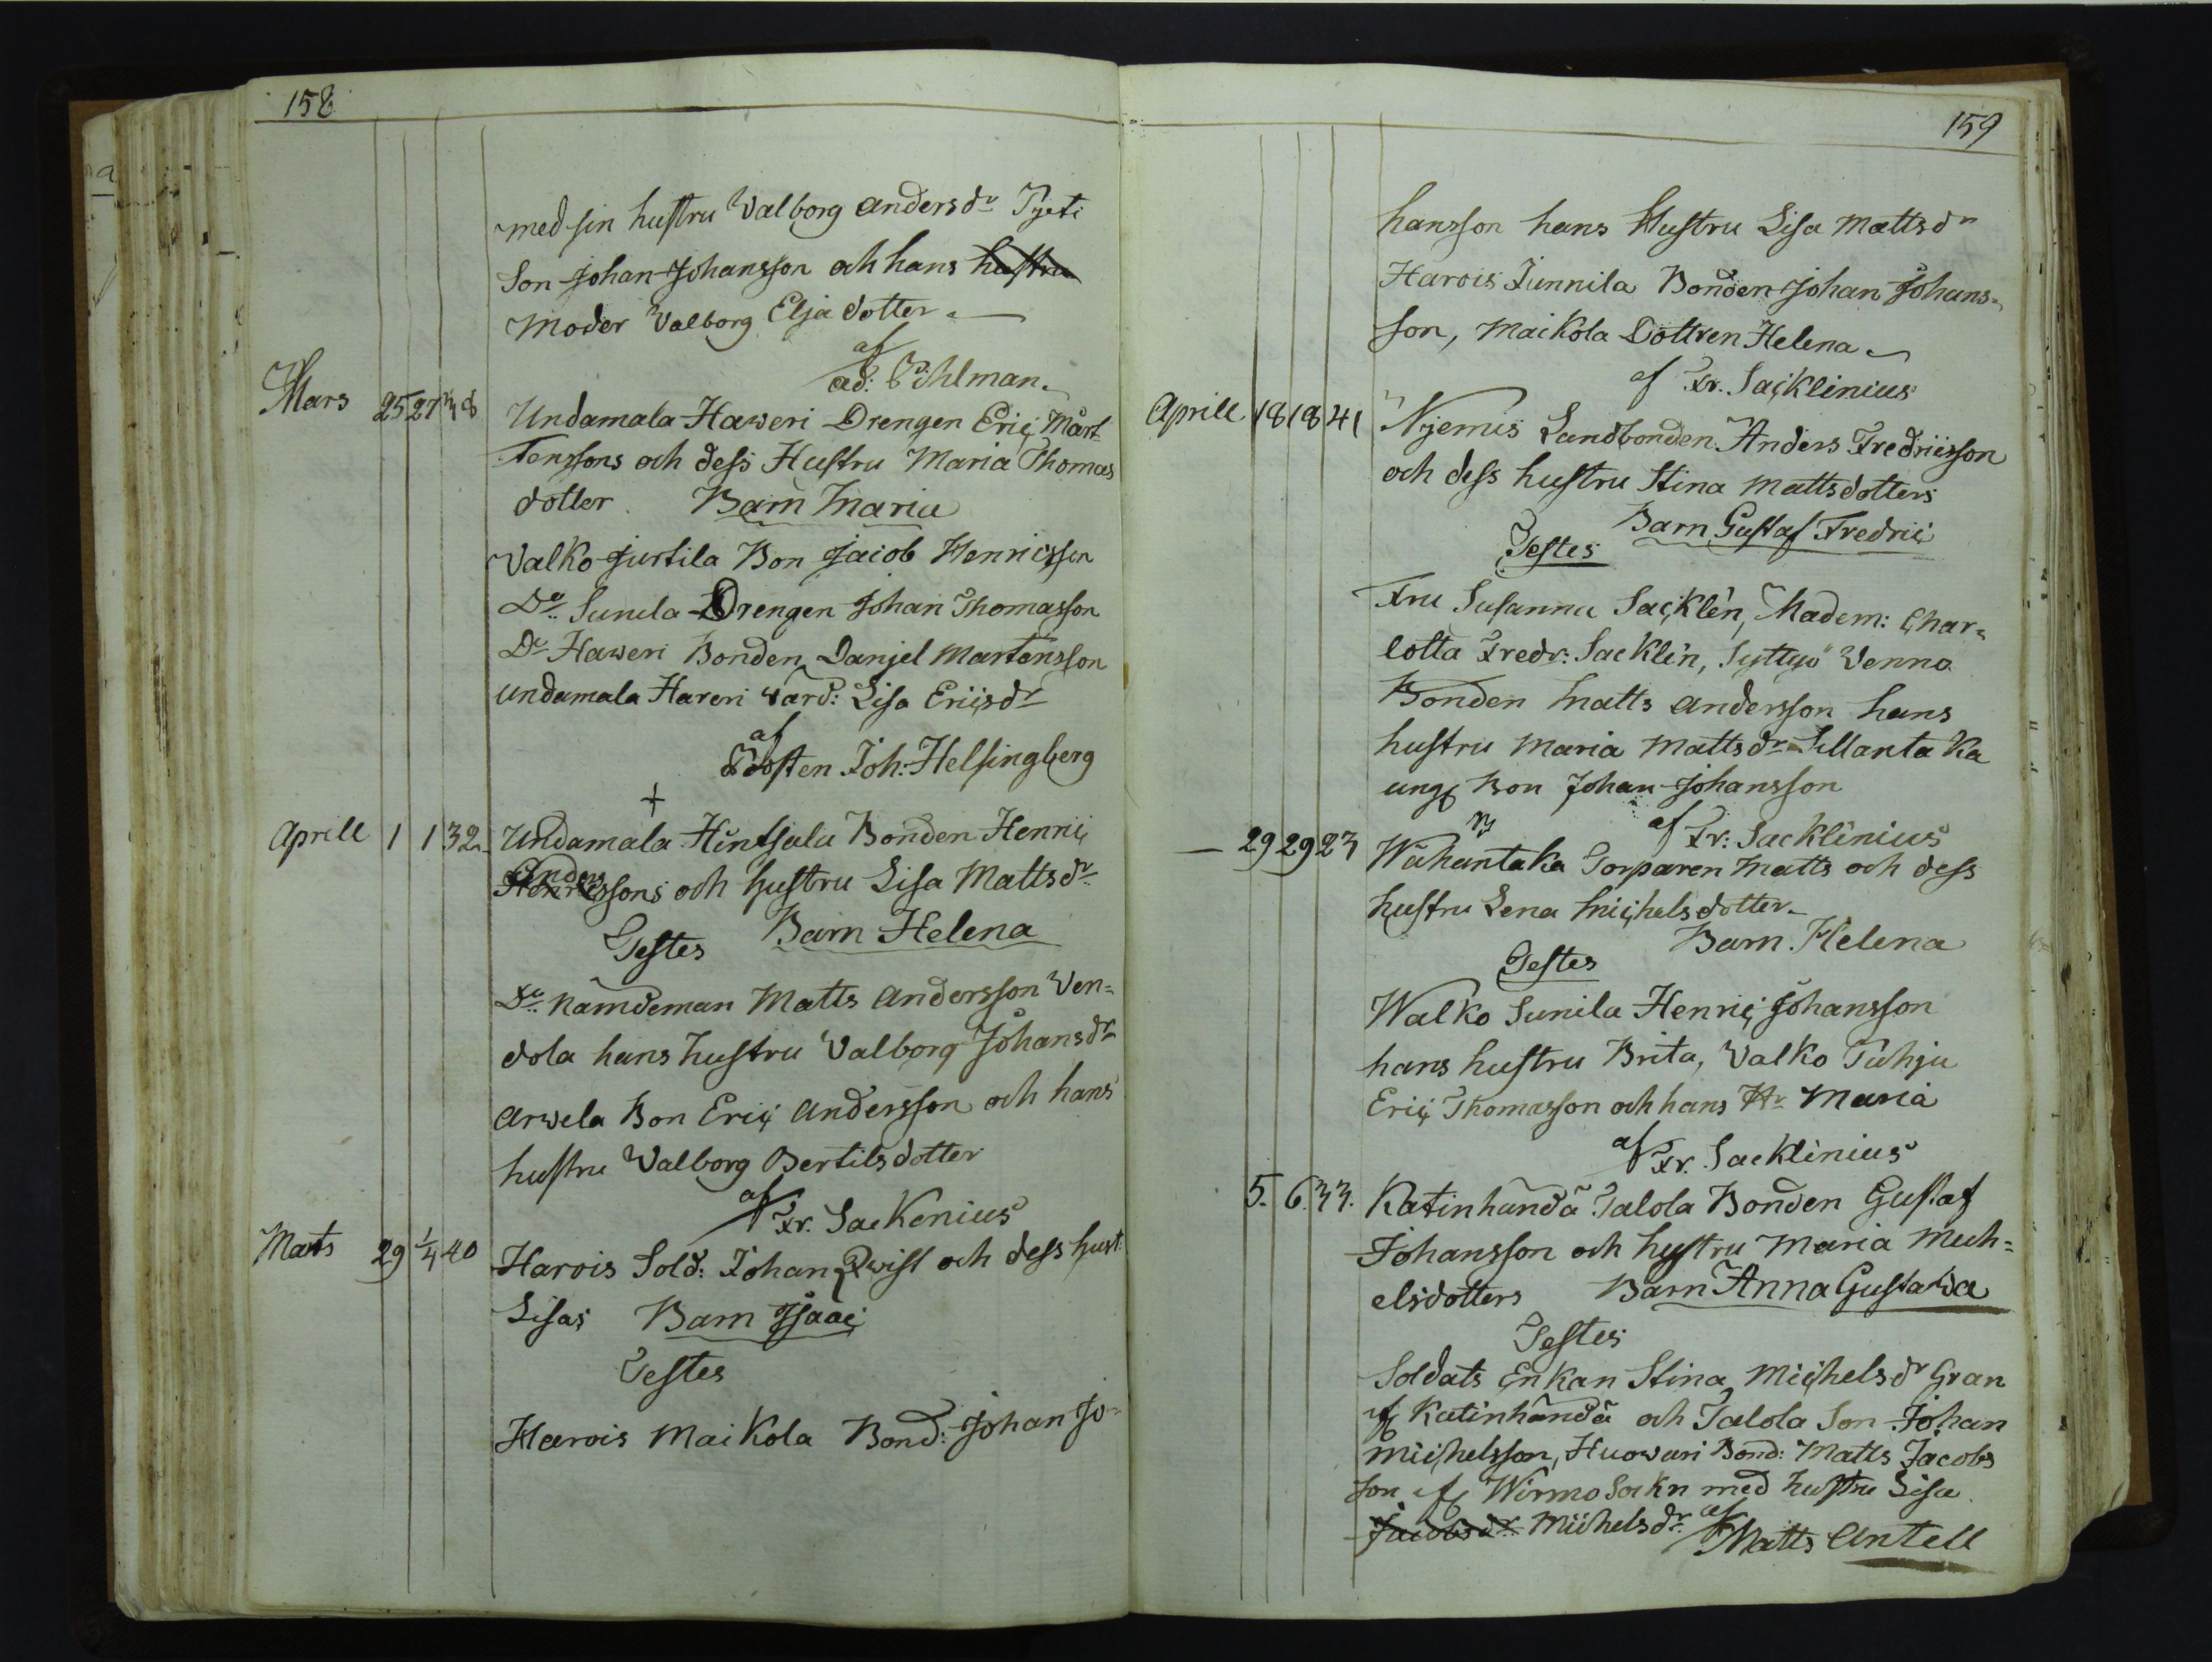 158
med sin hustru Valborg Andersdr Pyeti
Son Johan Johansson och hans hustru
Moder Valborg Eljadotter.
af
ad: Pihlman.
Mars 25 27 38 Undamala Haweri Drengen Eric Mårt
Tenssons och dess Hustru Maria Thomas
dotter. Barn Maria
Valko Jurtila Bon Jacob Henricsson
Do Sunila Drengen Johan Thomasson
Do Haweri Bonden Danjel Martensson
Undamala Hareri värd: Lisa Ericsdr
af
Joh: Helsingberg
+
Aprill 1 1 32 Undamala Hintsala Bonden Henric
Anders
Henricssons och hustru Lisa Mattsdr
Testes Barn Helena
Do Nämdeman Matts Andersson Ven=
dola hans hustru Valborg Johansdr
Arwela Bon Eric Andersson och hans
hustru Valborg Bertilsdotter
af
Fr. Sackenius
Marts 29 1/4 40 Harois Sold: Johan Qwist och dess hust:
Lisas Barn Isaac
Testes
Harois Maikola Bond: Johan Jo=
159
hansson hans Hustru Lisa Mattsdr
Harois Junnila Bonden Johan Johans=
son, Maikola Dottren Helena
af Fr. Sacklinius
Aprill 18 18 41 Nyemis Landbonden Anders Fredricsson
och dess hustru Stina Mattsdotters
Barn Gustaf Fredric
Testes
Fru Susanna Sacklén, Madem: Char=
lotta Fredr: Sacklén, Syttyö Venno
Bonden Matts Andersson hans
hustru Maria Mattsdr Sillantaka
ung Bon Johan Johansson
af Fr: Sacklinius
— 29 29 23 Wähäntaka Torparen Matts och dess
hustru Lena Michelsdotter
Barn Helena
Testes
Walko Sunila Henric Johansson
hans hustru Brita, Valko Tuhju
Eric Thomasson och hans Hr Maria
af Fr. Sacklinius
5. 6. 33. Katinhändä Talola Bonden Gustaf
Johansson och hustru Maria Mich=
elsdotters Barn Anna Gustawa
Testes
Soldats Enkan Stina Michelsdr Gran
if Katinhändä och Talola Son Johan
Michelsson, Huowari Bond: Matts Jacobs
son if Wirmo Sockn med hustru Lisa
Jacobsdr Michelsdr af
Matts Antell